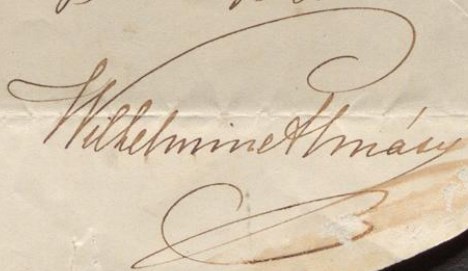 Wilhelmine Almásy